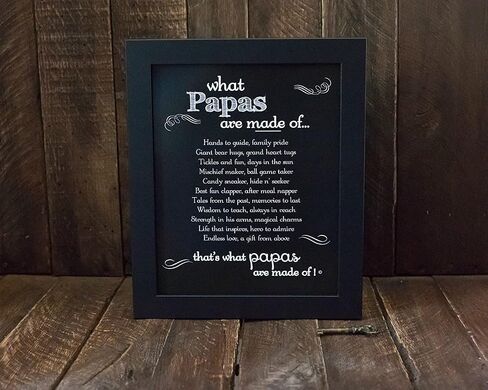 what
Papas
are made of...
Hands to guide, family pride
Giant bear hugs, grand heart tugs
Tickles and fun, days in the sun
Mischief maker, ball game taker
Candy sneaker, hide n' seeker
Best fun clapper, after meal napper
Tales from the past, memories to last
Wisdom to teach, always in reach
Strength in his arms, magical charms
Life that inspires, hero to admire
Endless love, a gift from above
that's what papas
are made of! ©